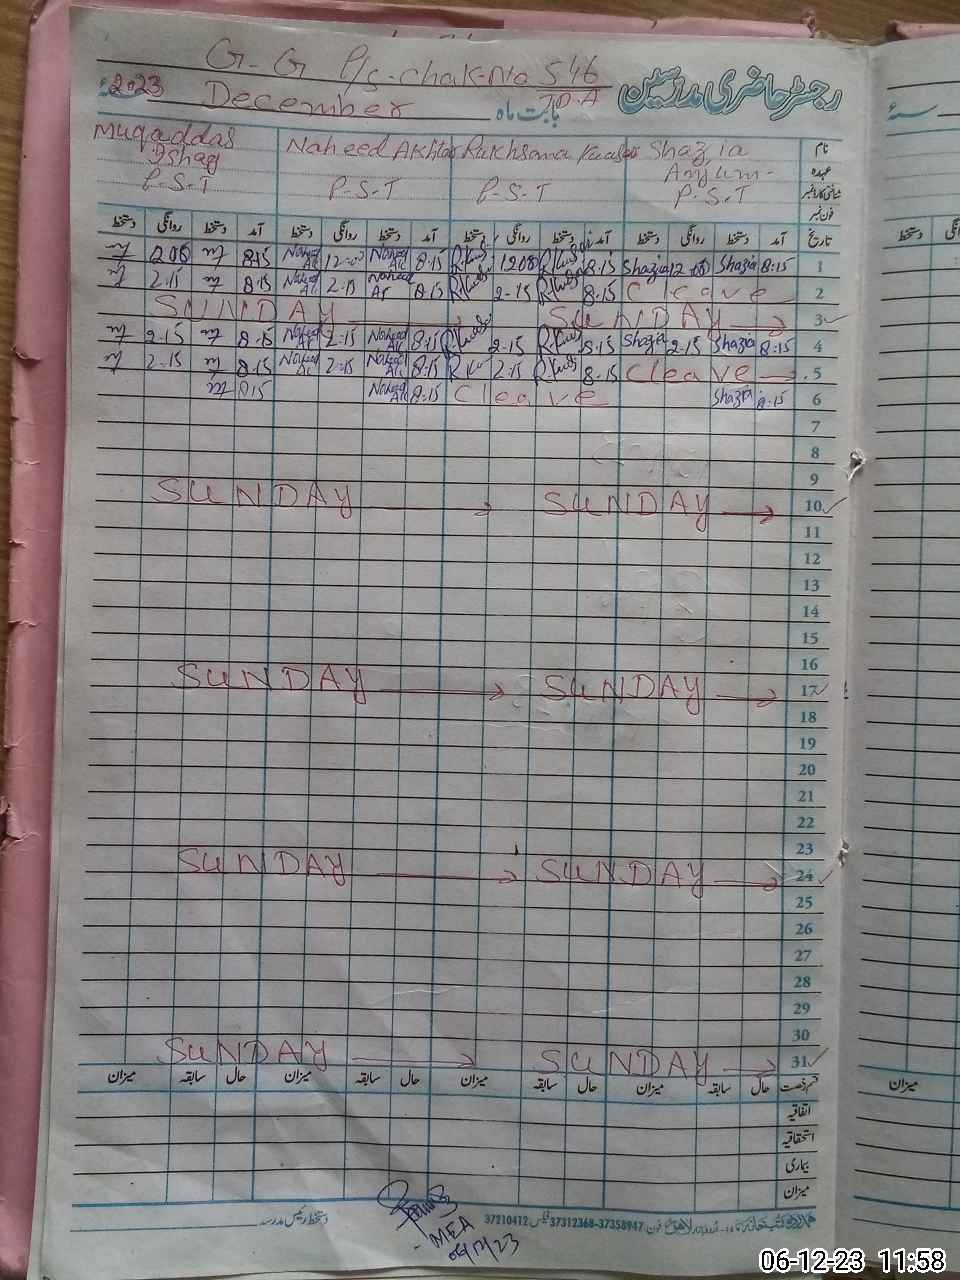 G-G P/s-chak-No 546
TDA
رجسٹر حاضری مدرسین
2023
December
بابت ماہ
سنہ
Muqaddas Naheed Akhtar Rukhsana Kausar Shazia نام
Ishaq Anjum- عہدہ
P-S-T P-S-T P-S-T P-S-T شناختی کارڈ نمبر
فون نمبر
دستخط روانگی دستخط آمد دستخط روانگی دستخط آمد دستخط روانگی دستخط آمد دستخط روانگی دستخط آمد تاریخ
8:15 Naheed 12:00 Naheed 8:15 1200 8:15 Shazia 12:00 Shazia 8:15 1
2.15 8:15 Naheed 2:15 Naheed 8:15 2-15 8:15 Cleave 2
SUNDAY SUNDAY 3
2-15 8:15 Naheed 2:15 Naheed 8:15 2-15 8:15 Shazia 2-15 Shazia 8:15 4
2-15 8:15 Naheed 2:15 Naheed 8:15 2-15 8:15 Cleave 5
8:15 Naheed 8:15 Cleave Shazia 8:15 6
7
8
9
SUNDAY SUNDAY 10
11
12
13
14
15
16
SUNDAY SUNDAY 17
18
19
20
21
22
23
SUNDAY SUNDAY 24
25
26
27
28
29
30
SUNDAY SUNDAY 31
میزان سابقہ حال میزان سابقہ حال میزان سابقہ حال میزان سابقہ حال قسم رخصت
اتفاقیہ
استحقاقیہ
بیماری
میزان
دستخط رئیس مدرسہ
فون 37358947-37312368 فیکس 37210412
MEA
06/12/23
سنہ
دستخط
میزان
06-12-23 11:58